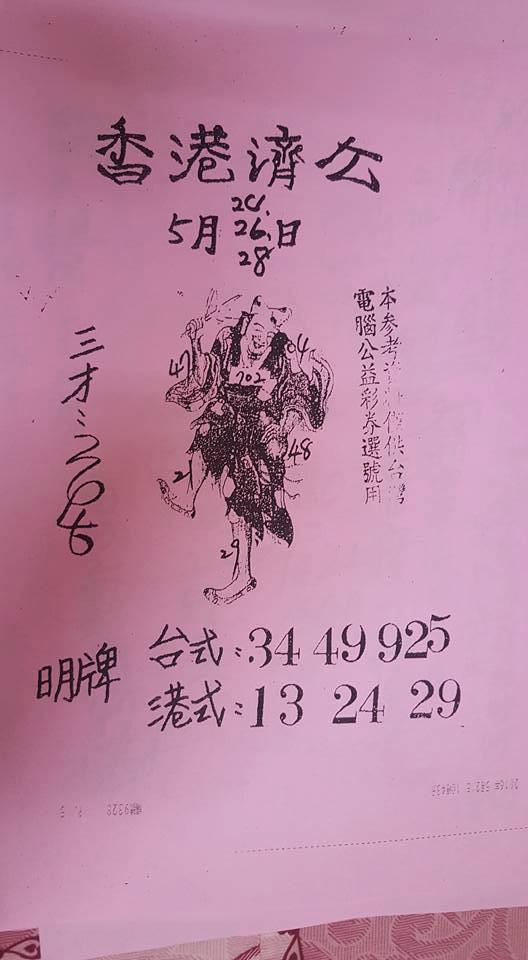 香港濟公
24.
5月26.日
28
本参考資料僅供台灣
電腦公益彩券選號用
47
04
702
48
21
29
三才:
明牌
台式:34 49 925
港式:13 24 29